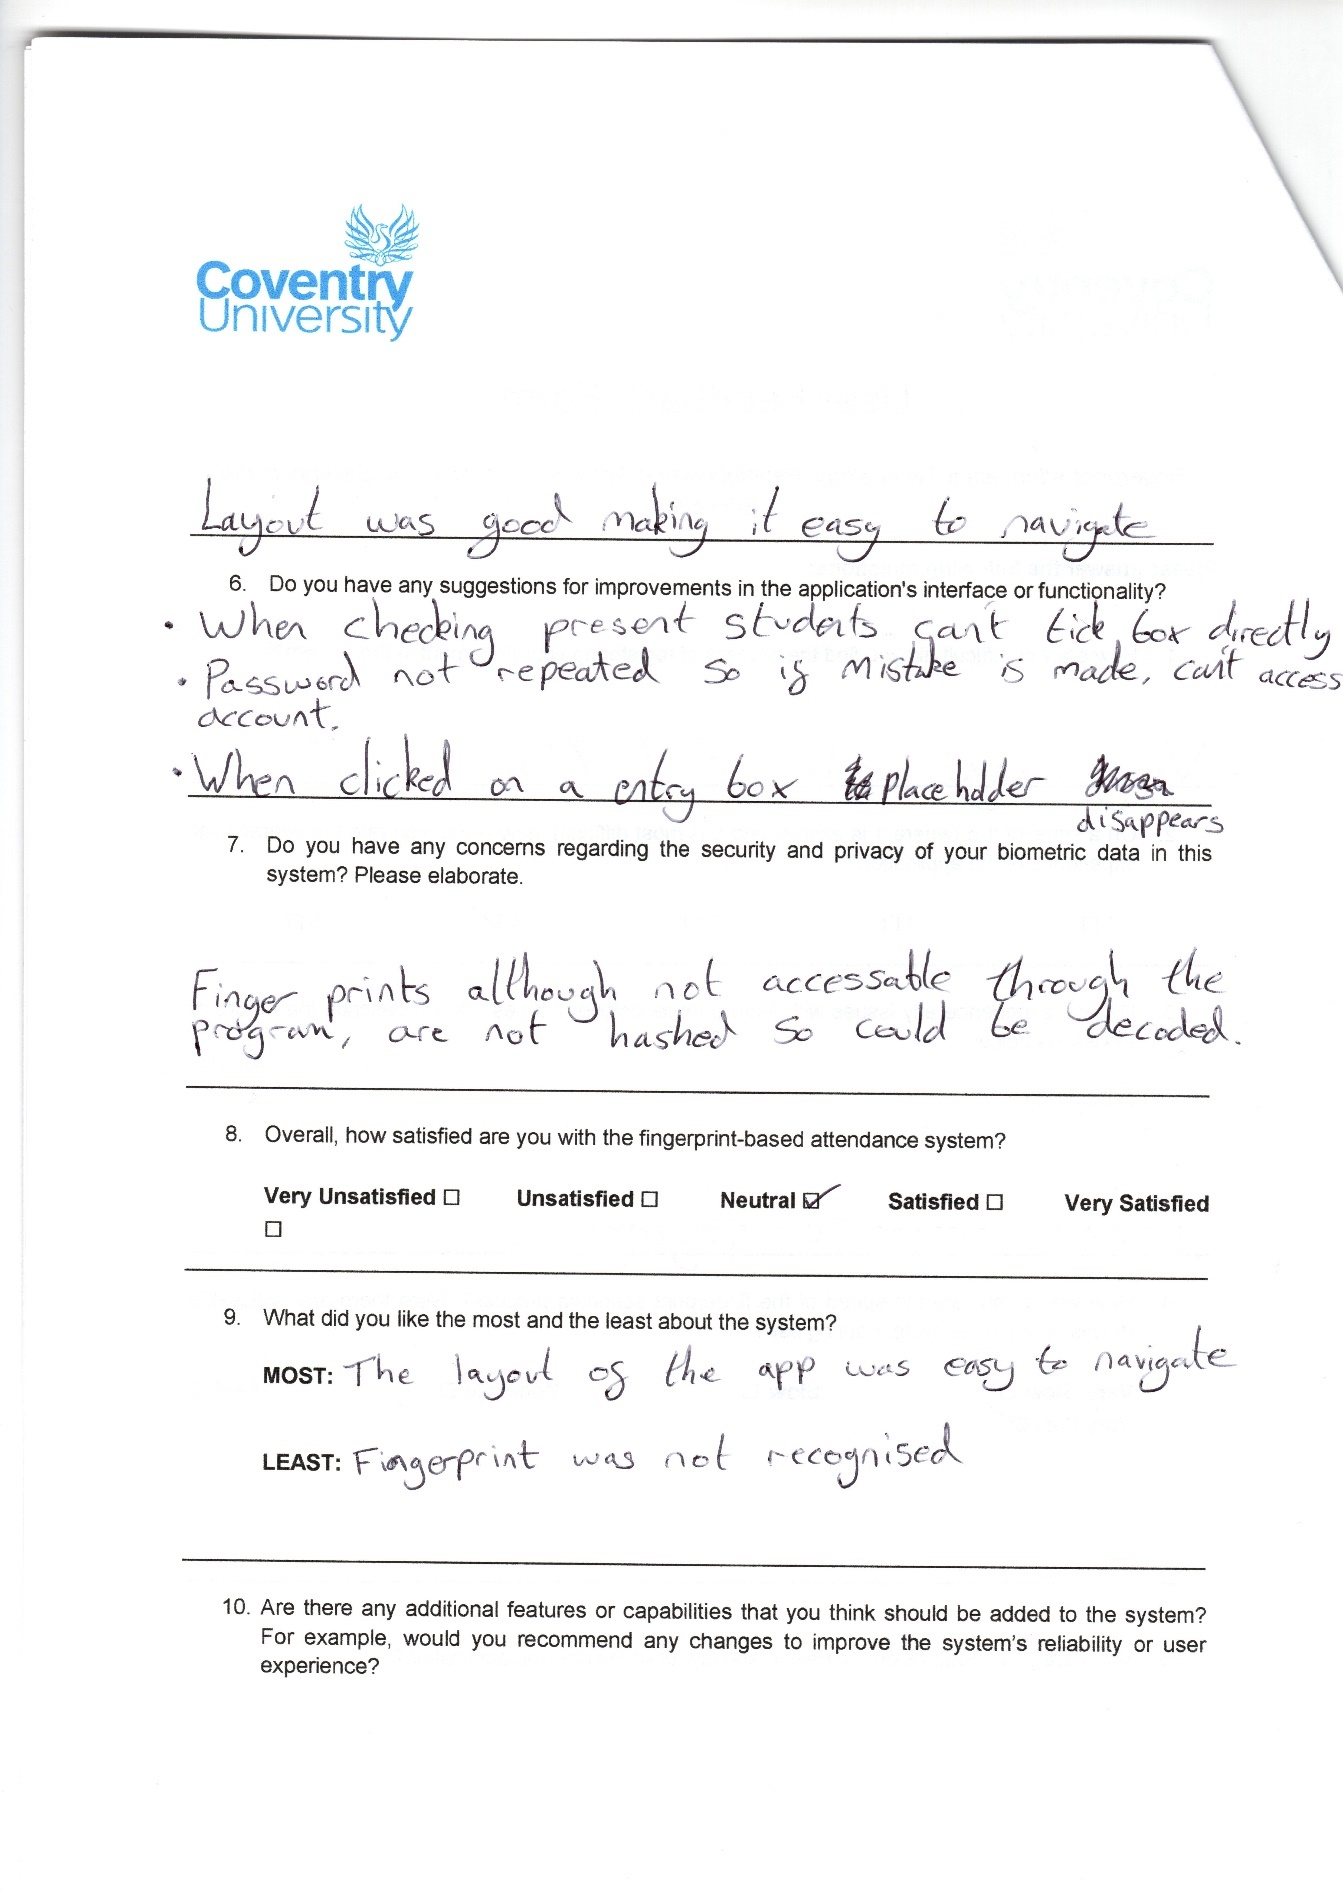 Coventry
University
Layout was good making it easy to navigate
6. Do you have any suggestions for improvements in the application's interface or functionality?
• When checking present students can't tick box directly
• Password not repeated so if mistake is made, can't access
account.
• When clicked on a entry box placeholder
disappears
7. Do you have any concerns regarding the security and privacy of your biometric data in this
system? Please elaborate.
Finger prints although not accessable through the
program, are not hashed so could be decoded.
8. Overall, how satisfied are you with the fingerprint-based attendance system?
Very Unsatisfied ☐ Unsatisfied ☐ Neutral ☑ Satisfied ☐ Very Satisfied
☐
9. What did you like the most and the least about the system?
MOST: The layout of the app was easy to navigate
LEAST: Fingerprint was not recognised
10. Are there any additional features or capabilities that you think should be added to the system?
For example, would you recommend any changes to improve the system's reliability or user
experience?